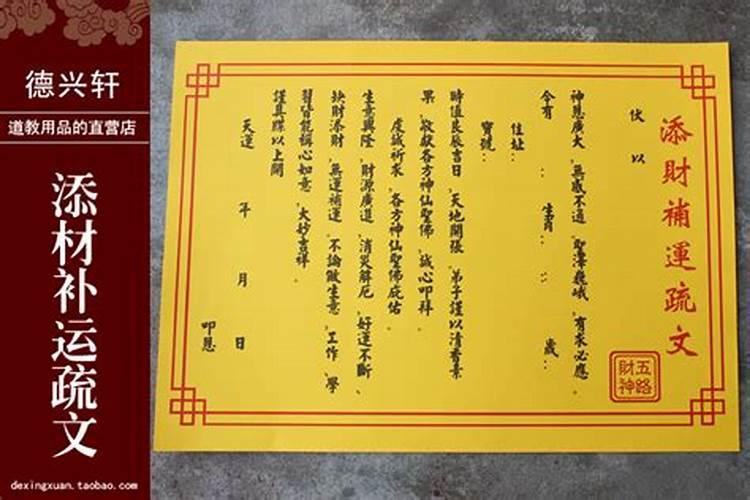 德兴轩
道教用品的直营店
添材补运疏文
dexingxuan.taobao.com
添財補運疏文
五路
財神
伏以
神恩廣大、無感不通、聖澤巍峨、有求必應。
今有 : 生肖: : 歲:
住址:
寶號:
時值良辰吉日、天地開張、弟子謹以清香素
果、敬獻各方神仙聖佛、誠心叩拜。
虔誠祈求、各方神仙聖佛庇佑
生意興隆、財源廣進、消災解厄、好運不斷、
缺財添財、無運補運、不論做生意、工作、學
習皆能稱心如意、大妙吉祥。
謹具牒以上聞
天運 年 月 日
叩恩